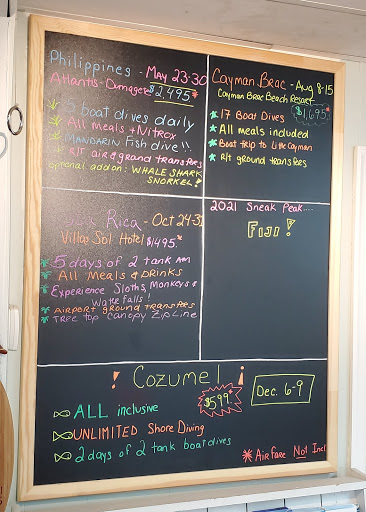 Philippines - May 23-30
Atlantis - Dumagete $2,495*
5 boat dives daily
All meals + Nitrox
MANDARIN Fish dive!!
R/t air & grand transfers
optional add on: WHALE SHARK
SNORKEL!
Cayman Brac - Aug 8-15
Cayman Brac Beach Resort
$1,695*
* 17 Boat Dives
* All meals included
* Boat trip to Little Cayman
* R/t ground transfers
Rica - Oct 24-31
Villas Sol Hotel $1495*
* 5 days of 2 tank AM
* All Meals & DRINKS
* Experience Sloths, Monkeys &
Waterfalls!
* AIRPORT ground transfers
* TREE top Canopy Zip Line
2021 Sneak Peak....
FIJI!
! Cozumel !
$599*
Dec. 6-9
ALL inclusive
UNLIMITED Shore Diving
2 days of 2 tank boat dives
* Airfare Not Incl